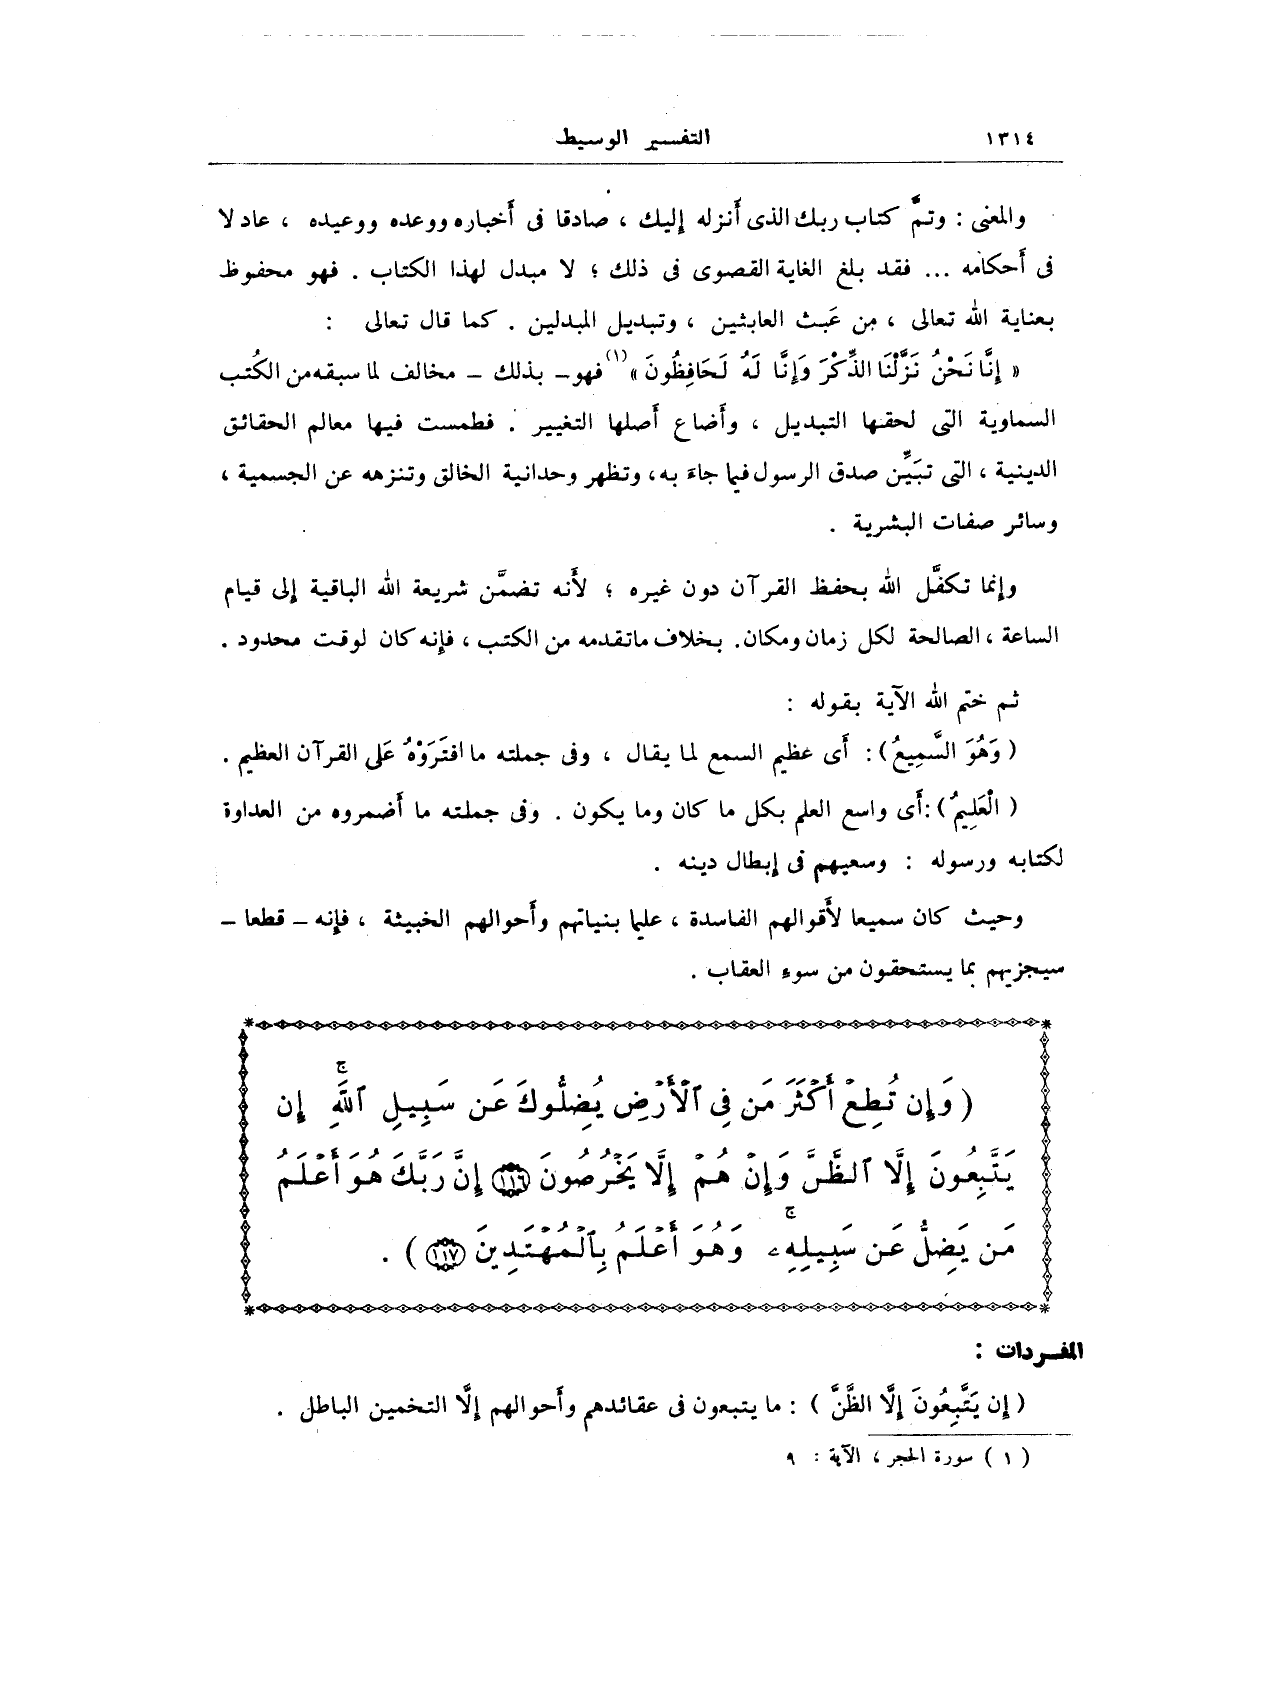 ١٣١٤ التفسير الوسيط
والمعنى : وتمَّ كتاب ربك الذى أنزله إليك ، صادقا فى أخباره ووعده ووعيده ، عادلا
فى أحكامه ... فقد بلغ الغاية القصوى فى ذلك ؛ لا مبدل لهذا الكتاب . فهو محفوظ
بعناية الله تعالى ، مِن عَبث العابثين ، وتبديل المبدلين . كما قال تعالى :
« إِنَّا نَحْنُ نَزَّلْنَا الذِّكْرَ وَإِنَّا لَهُ لَحَافِظُونَ »(١) فهو – بذلك – مخالف لما سبقه من الكُتب
السماوية التى لحقها التبديل ، وأضاع أصلها التغيير . فطمست فيها معالم الحقائق
الدينية ، التى تبَيِّن صدق الرسول فيما جاءَ به، وتظهر وحدانية الخالق وتنزهه عن الجسمية ،
وسائر صفات البشرية .
وإنما تكفَّل الله بحفظ القرآن دون غيره ؛ لأنه تضمَّن شريعة الله الباقية إلى قيام
الساعة ، الصالحة لكل زمان ومكان. بخلاف ماتقدمه من الكتب ، فإنه كان لوقت محدود .
ثم ختم الله الآية بقوله :
( وَهُوَ السَّمِيعُ ) : أى عظيم السمع لما يقال ، وفى جملته ما افتَرَوْهُ عَلى القرآن العظيم .
( الْعَلِيمُ ) :أى واسع العلم بكل ما كان وما يكون . وفى جملته ما أضمروه من العداوة
لكتابه ورسوله : وسعيهم فى إبطال دينه .
وحيث كان سميعا لأقوالهم الفاسدة ، عليما بنياتهم وأحوالهم الخبيثة ، فإنه – قطعا –
سيجزيهم بما يستحقون من سوءِ العقاب .
( وَإِن تُطِعْ أَكْثَرَ مَن فِى ٱلْأَرْضِ يُضِلُّوكَ عَن سَبِيلِ ٱللَّهِ ۚ إِن
يَتَّبِعُونَ إِلَّا ٱلظَّنَّ وَإِنْ هُمْ إِلَّا يَخْرُصُونَ ١١٦ إِنَّ رَبَّكَ هُوَ أَعْلَمُ
مَن يَضِلُّ عَن سَبِيلِهِۦ ۚ وَهُوَ أَعْلَمُ بِٱلْمُهْتَدِينَ ١١٧ ) .
المفـردات :
( إِن يَتَّبِعُونَ إِلَّا الظَّنَّ ) : ما يتبعون فى عقائدهم وأحوالهم إلَّا التخمين الباطل .
( ١ ) سورة الحجر ، الآية : ٩